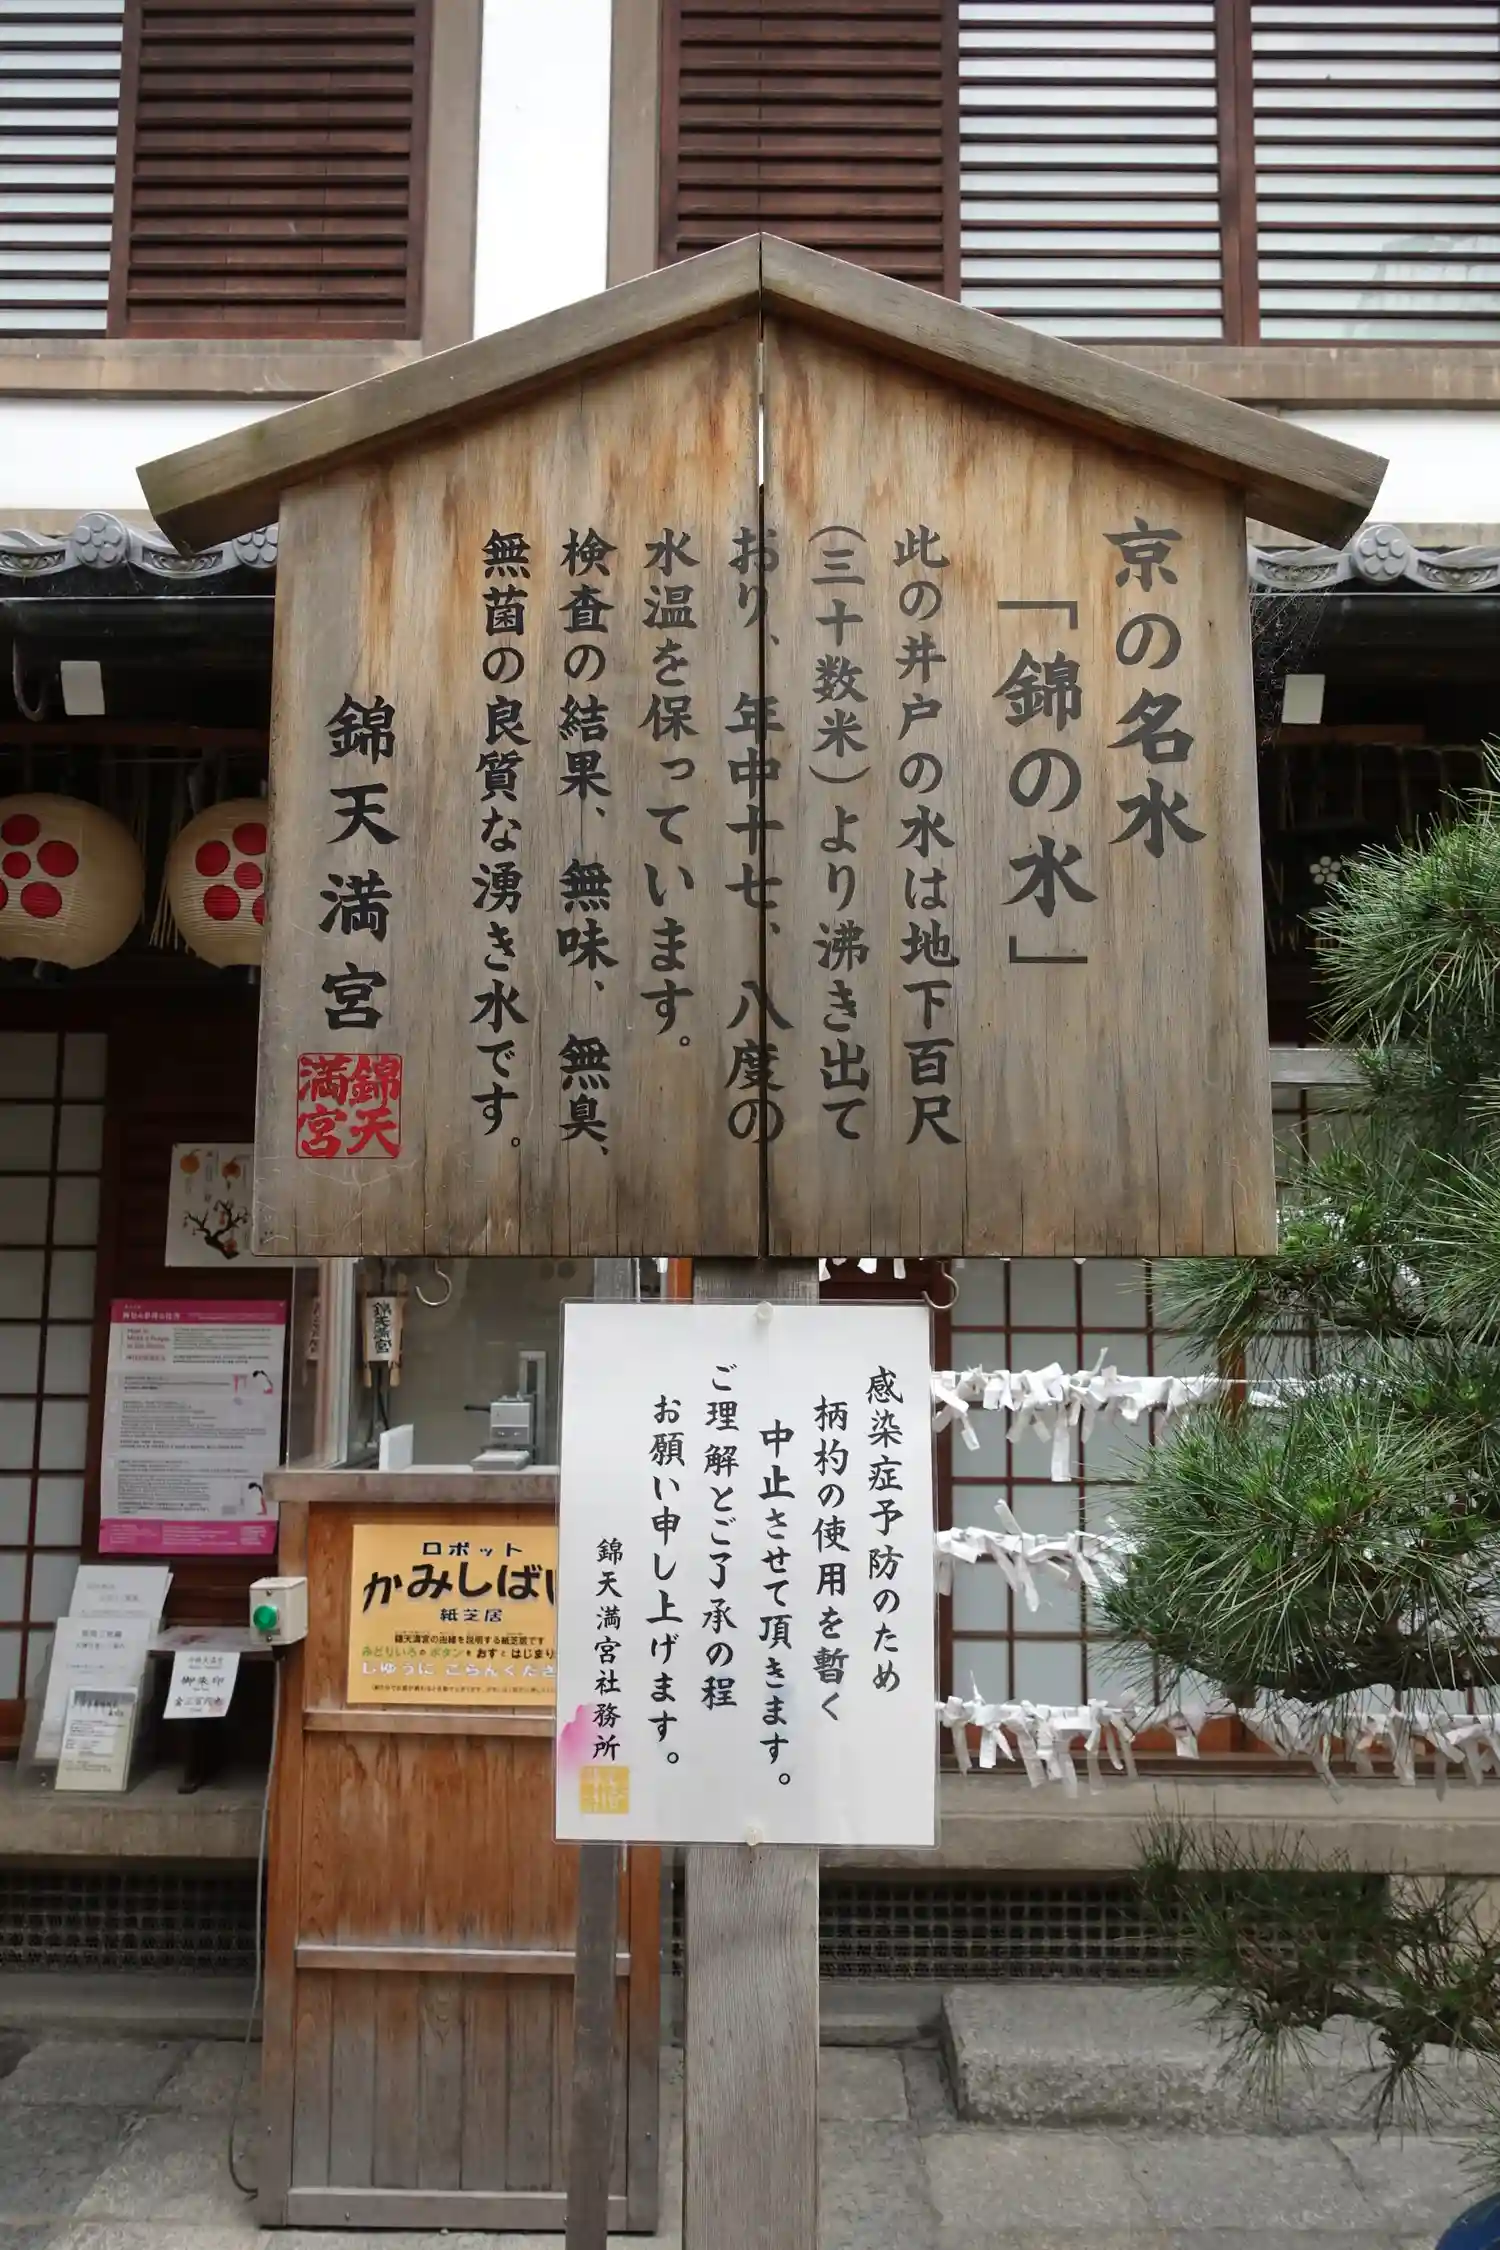 京の名水
「錦の水」
此の井戸の水は地下百尺
(三十数米)より沸き出て
おり、年中十七、八度の
水温を保っています。
検査の結果、無味、無臭、
無菌の良質な湧き水です。
錦天満宮
錦天
満宮
感染症予防のため
柄杓の使用を暫く
中止させて頂きます。
ご理解とご了承の程
お願い申し上げます。
錦天満宮社務所
錦天満宮
ロボット
かみしばい
紙芝居
錦天満宮の由緒を説明する紙芝居です
みどりいろのボタンをおすとはじまり
じゆうにごらんくださ
御朱印
金三百円也